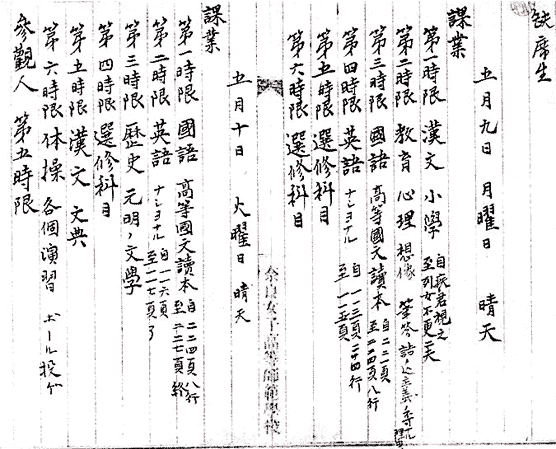 欠席生
五月九日 月曜日 晴天
課業
第一時限 漢文 小學 自 君視之 至列女不更二夫
第二時限 教育 心理 想像 筆答
第三時限 國語 高等國文讀本 自二二一頁 至二二四頁八行
第四時限 英語 ナショナル 自一一三頁二十四行 至一一五頁
第五時限 選修科目
第六時限 選修科目
五月十日 火曜日 晴天
課業
第一時限 國語 高等國文讀本 自二二四頁八行 至二二七頁終
第二時限 英語 ナショナル 自一一六頁 至一一七頁了
第三時限 歷史 元明ノ文學
第四時限 選修科目
第五時限 漢文 文典
第六時限 体操 各個演習 ボール投ケ
參觀人 第五時限
奈良女子高等師範學校